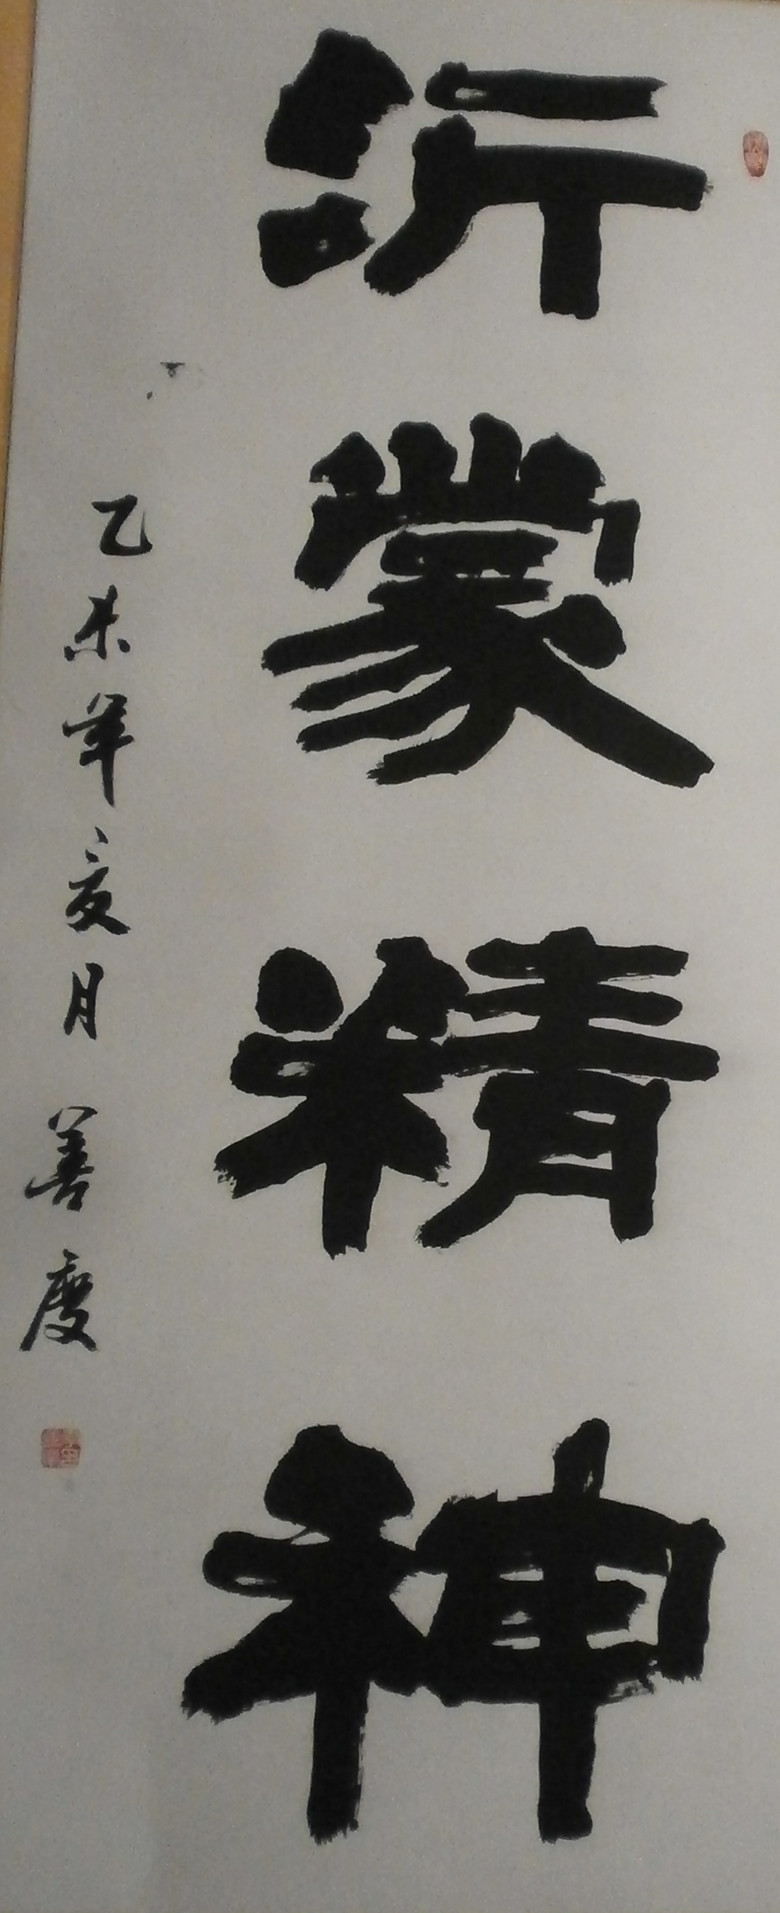 沂蒙精神
乙未年亥月 善庆